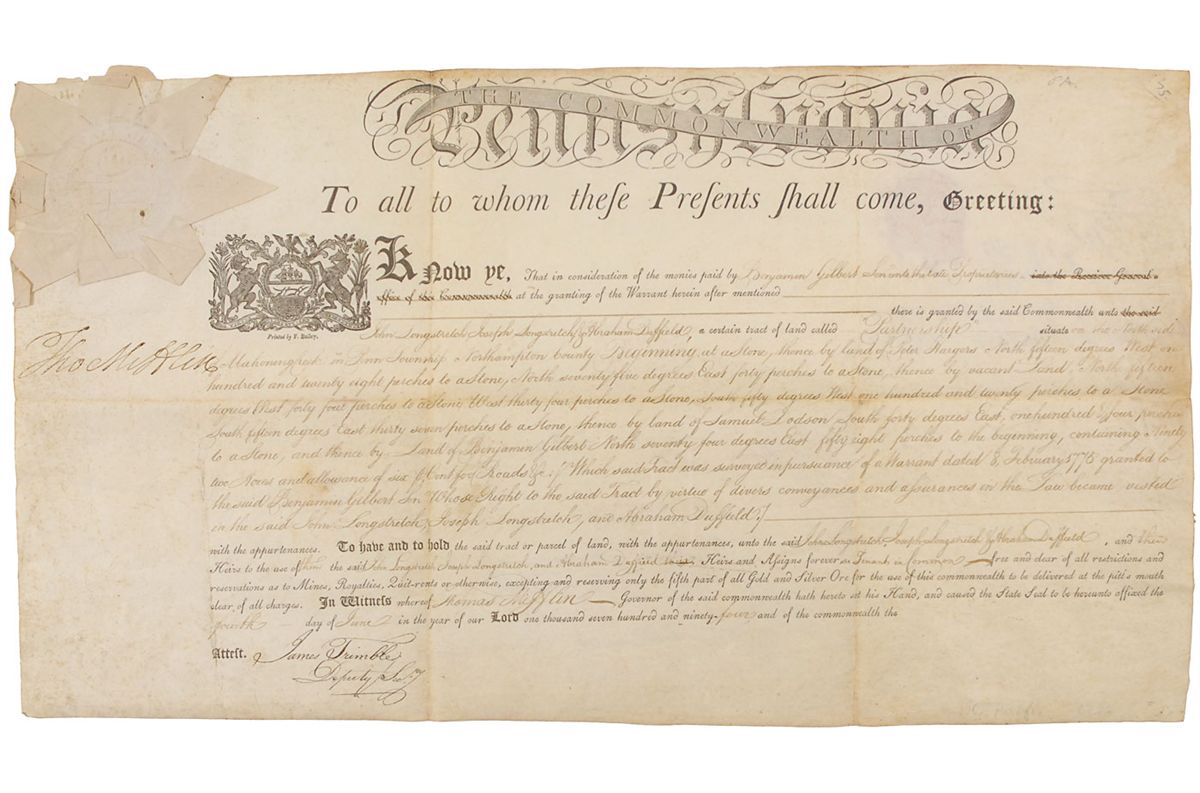 THE COMMONWEALTH OF
Pennsylvania
To all to whom theſe Preſents ſhall come, Greeting:
Know ye, That in consideration of the monies paid by Benjamin Gilbert Senr unto the late Proprietaries into the Receiver General's
office of the Commonwealth at the granting of the Warrant herein after mentioned
there is granted by the said Commonwealth unto the said
Printed by F. Bailey.
John Longstretch Joseph Longstretch & Abraham Duffield, a certain tract of land called Partnership situate on the North side
Tho Mifflin
Mahoning in Penn Township Northampton County Beginning at a Stone, thence by land of Peter North fifteen degrees West one
hundred and twenty eight perches to a Stone, North seventy five degrees East forty perches to a Stone, thence by vacant Land, North fifteen
degrees West forty four perches to a Stone, West thirty four perches to a Stone, South fifty degrees West one hundred and twenty perches to a Stone
South fifteen degrees East thirty seven perches to a Stone, thence by land of Samuel Dodson South forty degrees East, one hundred & four perches
to a Stone, and thence by Land of Benjamin Gilbert North seventy four degrees East fifty eight perches to the beginning, containing Ninety
two Acres and allowance of six Cent for Roads &c. Which said Tract was surveyed in pursuance of a Warrant dated 8, February 1775 granted to
the said Benjamin Gilbert Sr Whose right to the said Tract by virtue of divers conveyances and assurances in the Law became vested
in the said John Longstretch, Joseph Longstretch, and Abraham Duffield
with the appurtenances. To have and to hold the said tract or parcel of land, with the appurtenances, unto the said John Longstretch, Joseph Longstretch & Abraham Duffield, and their
Heirs to the use of them the said John Longstretch Joseph Longstretch, and Abraham Duffield their Heirs and Assigns forever as Tenants in common free and clear of all restrictions and
reservations as to Mines, Royalties, Quit-rents or otherwise, excepting and reserving only the fifth part of all Gold and Silver Ore for the use of this commonwealth to be delivered at the pit's mouth
clear, of all charges. In Witness whereof Thomas Mifflin Governor of the said commonwealth hath hereto set his Hand, and caused the State Seal to be hereunto affixed the
fourth day of June in the year of our Lord one thousand seven hundred and ninety-four and of the commonwealth the
Attest. James Trimble
Deputy Secy